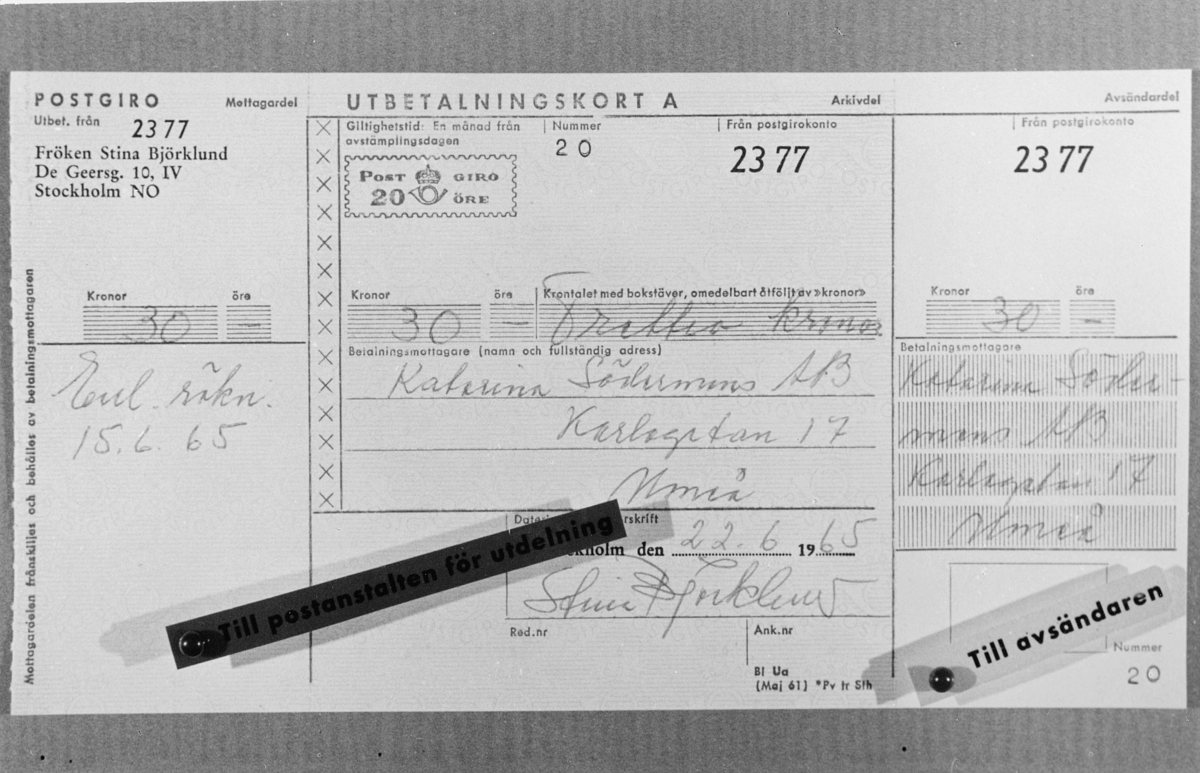 POSTGIRO Mottagardel
Utbet. från 23 77
Fröken Stina Björklund
De Geersg. 10, IV
Stockholm NO
Kronor öre
30 —
Enl. räkn.
15.6. 65
Mottagardelen frånskiljes och behålles av betalningsmottagaren
UTBETALNINGSKORT A Arkivdel
Giltighetstid: En månad från
avstämplingsdagen
Nummer
20
Från postgirokonto
23 77
POST GIRO
20 ÖRE
Kronor öre Krontalet med bokstäver, omedelbart åtföljt av »kronor»
30 — Trettio kronor
Betalningsmottagare (namn och fullständig adress)
Katarina Södermans AB
Karlsgatan 17
Umeå
Till postanstalten för utdelning
den 22.6 1965
Stina Björklund
Red.nr Ank.nr
Bl Ua
(Maj 61) *Pv tr Sth
Avsändardel
Från postgirokonto
23 77
Kronor öre
30 —
Betalningsmottagare
Katarina Söder-
mans AB
Karlsgatan 17
Umeå
Till avsändaren
Nummer
20